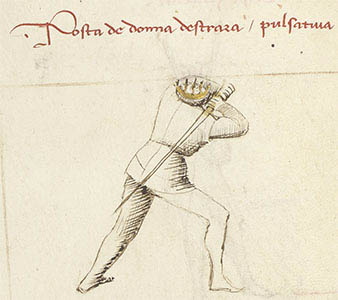 Posta de donna destraza / pulsativa